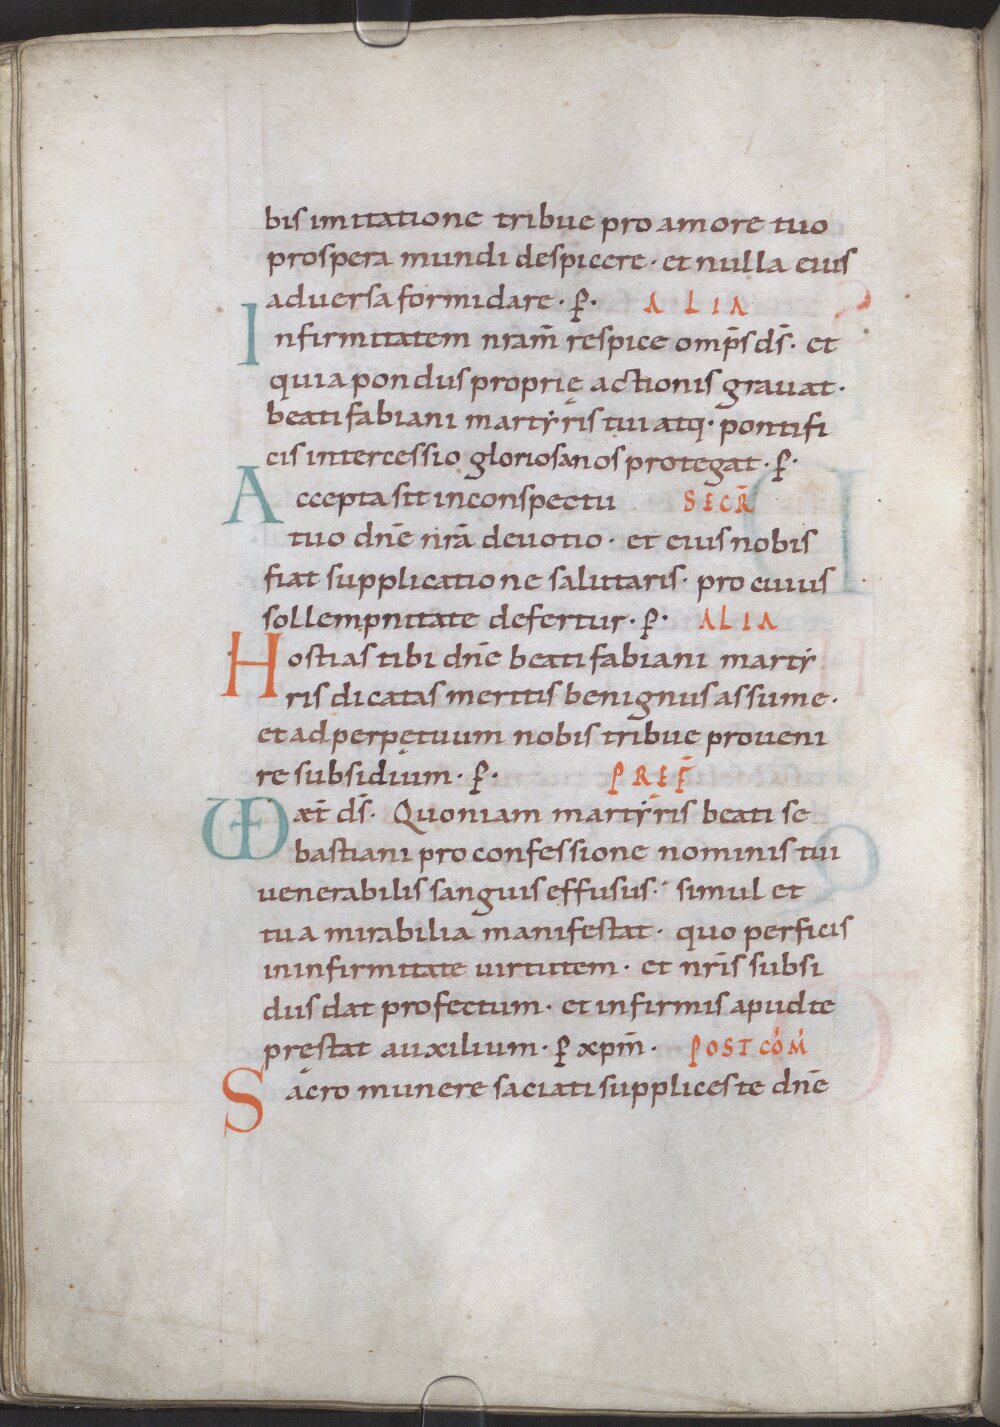 bis imitatione tribue pro amore tuo
prospera mundi despicere · et nulla eius
aduersa formidare · P̱ · ALIA
Infirmitatem nram̄ respice omp̄s ds̄ · et
quia pondus proprię actionis grauat ·
beati fabiani martẏris tui atq· pontifi
cis intercessio gloriosa nos protegat · P̱ ·
Accepta sit in conspectu SECR̄
tuo dnē nrā deuotio · et eius nobis
fiat supplicatio ne salutaris · pro cuius
sollempnitate defertur · P̱ · ALIA
Hostias tibi dnē beati fabiani martẏ
ris dicatas meritis benignus assume ·
et ad perpętuum nobis tribue proueni
re subsidium · P̱ · PREF̄
VD æt̄ ds̄ · Quoniam martẏris beati se
bastiani pro confessione nominis tui
uenerabilis sanguis effusus · simul et
tua mirabilia manifestat · quo perficis
in infirmitate uirtutem · et nrīs subsi
dus dat profectum · et infirmis apud te
pręstat auxilium · P̱ xpm̄ · POST COM
Sacro munere saciati supplices te dnē